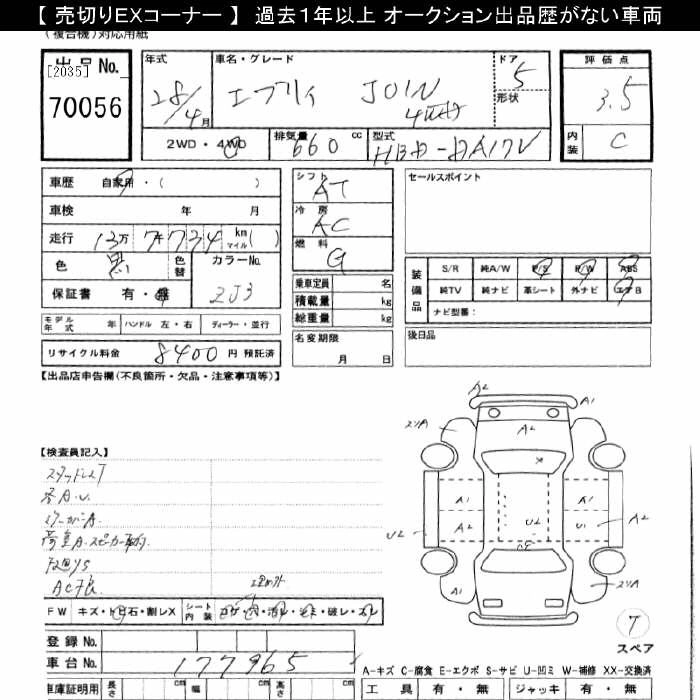 【 売切りEXコーナー 】 過去１年以上 オークション出品歴がない車両
(複合機)対応用紙
出品No.
[2035]
70056
年式
28/4月
車名・グレード
エブリィ JOIN
ドア
5
形状
評価点
3.5
2WD・4WD
排気量
660 cc
型式
HBD-DA17V
内装
C
車歴 自家用・( )
車検 年 月
走行 13万 7千 7 3 4 km マイル( )
色 黒 色替 カラーNo.
保証書 有・無 ZJ3
シフト
AT
冷房
AC
燃料
G
乗車定員 名
積載量 kg
総重量 kg
セールスポイント
装備品
S/R 純A/W P/S P/W ABS
純TV 純ナビ 革シート 外ナビ エアB
ナビ型番：
モデル年式 年 ハンドル 左・右 ディーラー・並行
リサイクル料金 8400 円 預託済
名変期限
月 日
後日品
【出品店申告欄(不良箇所・欠品・注意事項等)】
【検査員記入】
A2
A1
A2
A1
A1
A2
U2
U1
A2
U2
A1
FW キズ・トビ石・割レX シート内装
登録No.
車台No. 177965
スペア
A-キズ C-腐食 E-エクボ S-サビ U-凹ミ W-補修 XX-交換済
車庫証明用 長さ cm 幅 cm 高さ cm
工具 有・無 ジャッキ 有・無